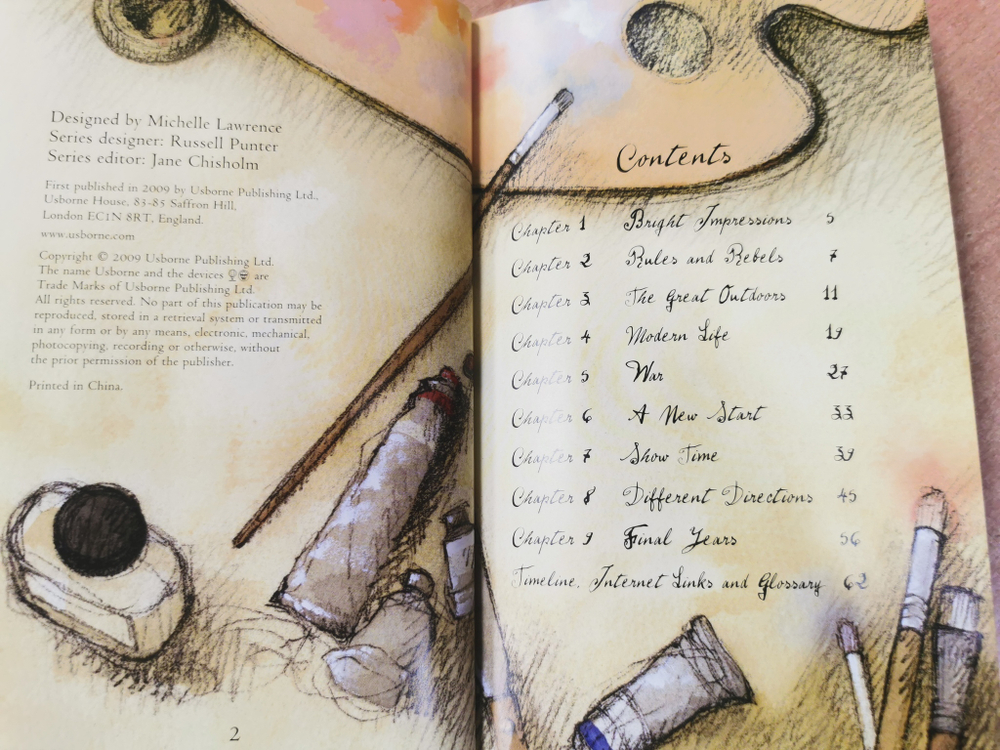 Designed by Michelle Lawrence
Series designer: Russell Punter
Series editor: Jane Chisholm
First published in 2009 by Usborne Publishing Ltd.,
Usborne House, 83-85 Saffron Hill,
London EC1N 8RT, England.
www.usborne.com
Copyright © 2009 Usborne Publishing Ltd.
The name Usborne and the devices are
Trade Marks of Usborne Publishing Ltd.
All rights reserved. No part of this publication may be
reproduced, stored in a retrieval system or transmitted
in any form or by any means, electronic, mechanical,
photocopying, recording or otherwise, without
the prior permission of the publisher.
Printed in China.
2
Contents
Chapter 1 Bright Impressions 5
Chapter 2 Rules and Rebels 7
Chapter 3 The Great Outdoors 11
Chapter 4 Modern Life 19
Chapter 5 War 27
Chapter 6 A New Start 33
Chapter 7 Show Time 39
Chapter 8 Different Directions 45
Chapter 9 Final Years 56
Timeline, Internet Links and Glossary 62